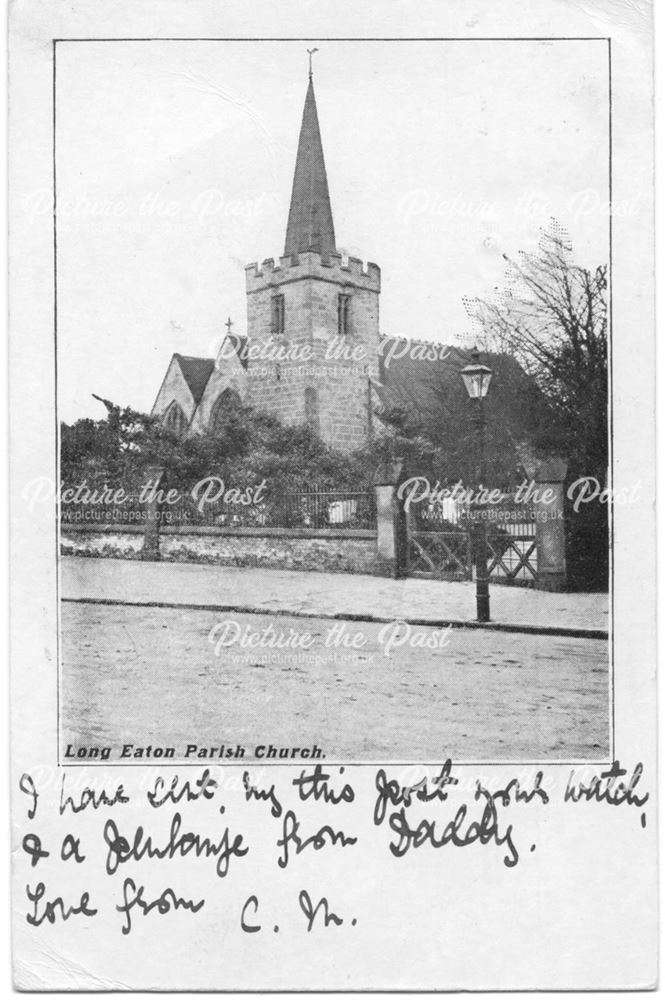 Picture the Past Picture the Past
www.picturethepast.org.uk www.picturethepast.org.uk
Picture the Past
www.picturethepast.org.uk
Picture the Past Picture the Past
www.picturethepast.org.uk www.picturethepast.org.uk
Picture the Past
www.picturethepast.org.uk
Long Eaton Parish Church.
I have sent, by this post your watch,
& a penknife from Daddy.
Love from C. M.
Picture the Past Picture the Past